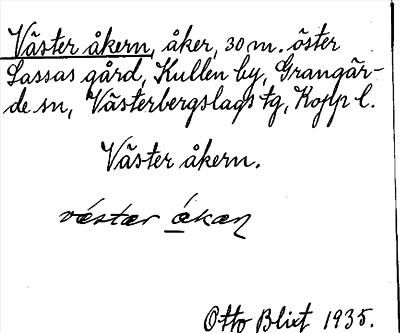 Väster åkern, åker, 30 m. öster
Lassas gård, Kullen by, Grangär-
de sn, Västerbergslags tg, Kopp l.
Väster åkern.
västær åkæɳ
Otto Blixt 1935.